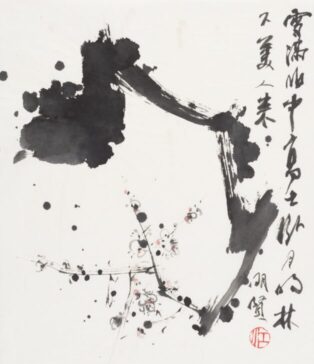 雪滿山中高士臥月明林
下美人来